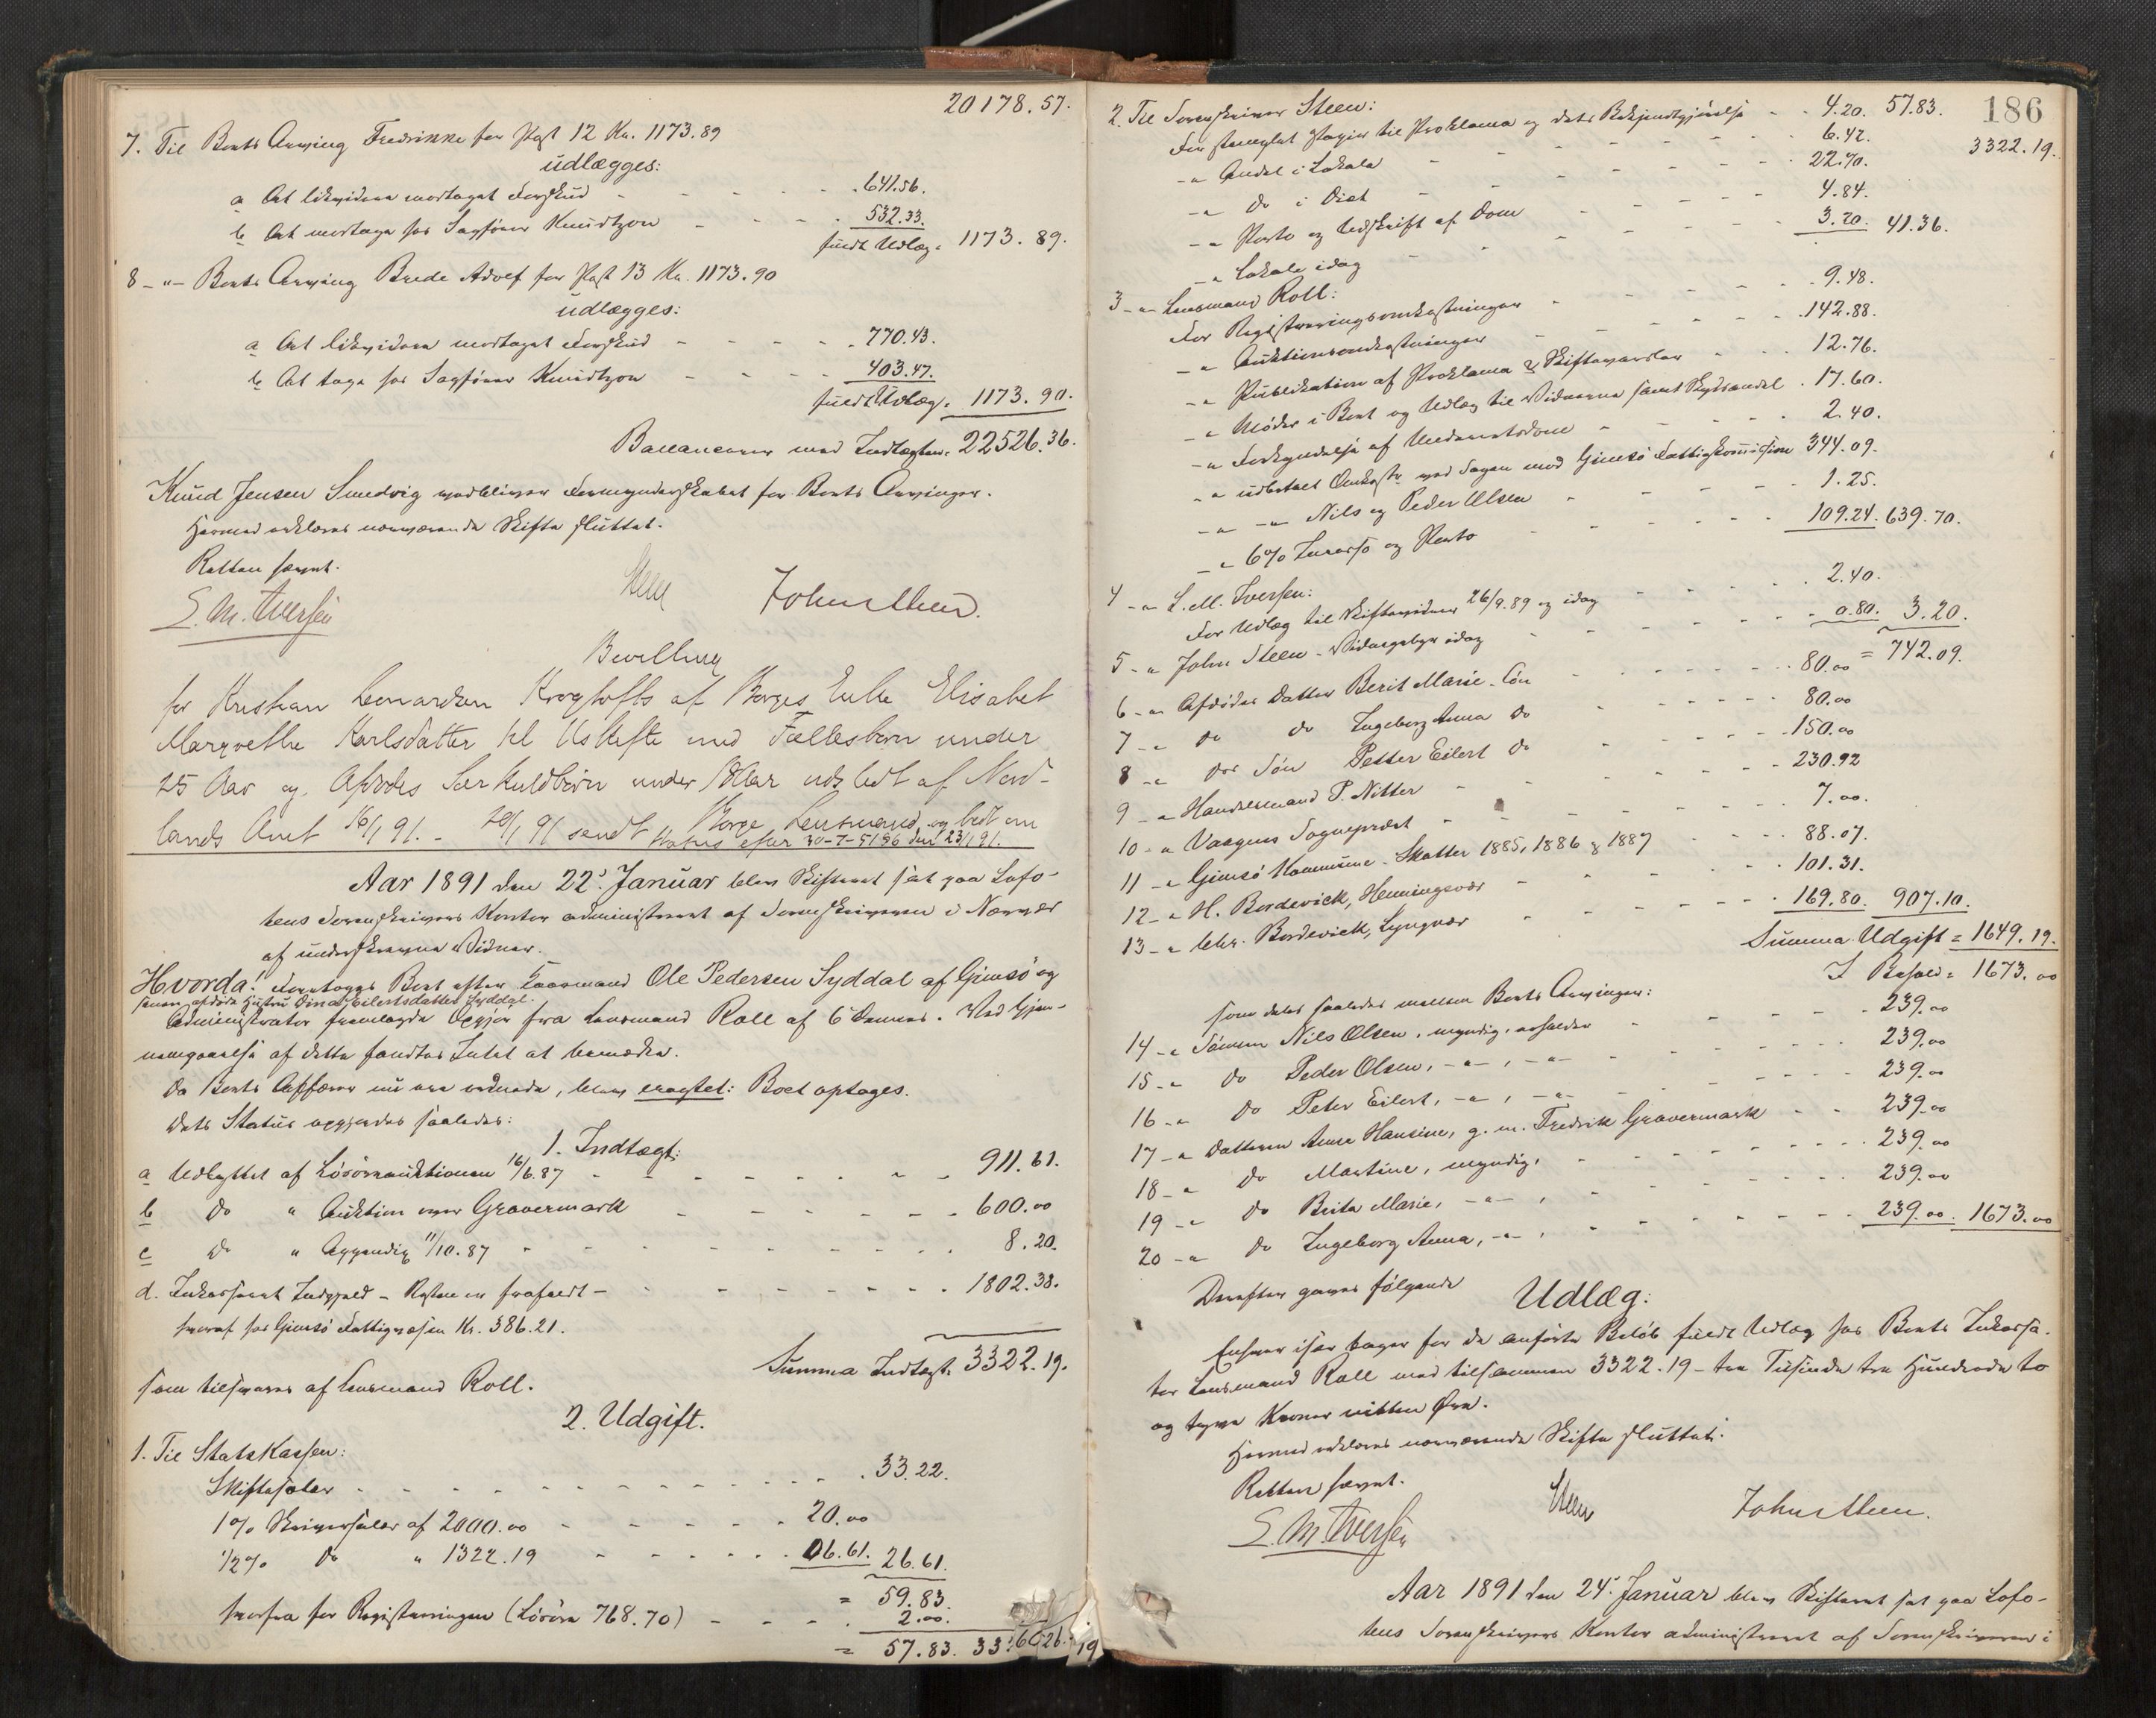 20178.57.
7. Til Boets Arving Fredrikke for Post 12 Kr. 1173.89
udlægges:
a At likvidere modtaget Forskud - - - - 641.56.
b At modtage hos Sagfører Knudtzon - - - 532.33.
fuldt Udlæg = 1173.89.
8 -"- Boets Arving Brede Adolf for Post 13 Kr. 1173.90
udlægges:
a At likvidere modtaget Forskud - - - - 770.43.
b At tage hos Sagfører Knudtzon - - - 403.47.
fuldt Udlæg = 1173.90.
Balancerer med Indtægten = 22526.36.
Knud Jensen Sundvig vedbliver Formynderskabet for Boets Arvinger.
Hermed erklæres nærværende Skifte sluttet.
Retten hævet.
Steen
S. M. Iversen John Steen.
Bevilling
for Kristian Leonardsen Krogtofts af Borges Enke Elisabet
Margrethe Karlsdatter til Uskifte med Fællesbørn under
25 Aar og Afdødes Særkuldbørn under 18 Aar udstedt af Nord-
lands Amt 16/1 91. - 20/1 91 sendt Borge Lensmand og bedt om
efter 30-7-5186 den 23/1 91.
Aar 1891 den 22. Januar blev Skifteret sat paa Lofo-
tens Sorenskrivers Kontor administreret af Sorenskriveren i Nærvær
af underskrevne Vidner.
Hvorda: Foretoges Boet efter Laasmand Ole Pedersen Syddal af Gimsø og
senere afdøde Hustru Dina Eilertsdatter Syddal.
Administrator fremlagde Opgjør fra Lensmand Roll af 6 Dennes. Ved Gjen-
nemgaaelse af dette fandtes Intet at bemærke.
Da Boets Affærer nu ere ordnede, blev eragtet: Boet optages.
Dets Status opgjordes saaledes:
1. Indtægt:
a Udbyttet af Løsøreauktionen 16/6.87 - - - - - 911.61.
b Do " Auktion over Gravermark - - - - - 600.00
c Do " Appendix 11/10.87 - - - - - 8.20.
d. Inkasseret Indgjæld - Resten er frafaldt - - - - - 1802.38.
hvoraf hos Gimsø Fattigvæsen Kr. 386.21.
Summa Indtægt = 3322.19.
som tilsvares af Lensmand Roll.
2. Udgift.
1. Til Statskassen:
Skiftesalær - - - - - 33.22.
1% Skriversalær af 2000.00 - - - - 20.00
1/2% Do " 1322.19 - - - - 06.61. 26.61.
= 59.83.
herfra for Registreringen (Løsøre 768.70) - - - 2.00.
= 57.83. 33
19
186
57.83. 3322.19.
2. Til Sorenskriver Steen:
For stemplet Papir til Proklama og dets Bekjendtgjørelse - - 4.20.
-" Andel i Lokale - - - - 6.42.
-" Do i Diæt - - - - 22.70.
-" Porto og Udskrift af Dom - - - - 4.84.
-" Lokale idag - - - - 3.20. 41.36.
3 -"- Lensmand Roll:
For Registreringsomkostninger - - - - 9.48.
-" Auktionsomkostninger - - - - 142.88.
-" Publikation af Proklama & Skiftevarsler - - 12.76.
-" Møder i Boet og Udlæg til Vidnerne samt Skydsandel . 17.60.
-" Forkyndelse af Underretsdom - - - - 2.40.
-" udbetalt Omkostn. ved Sagen mod Gimsø Fattigkommission 344.09.
-" -"- Nils og Peder Olsen - - - - 1.25.
-" 6% Inkasso og Porto - - - - 109.24. 639.70.
4 -"- S. M. Iversen:
For Udlæg til Skiftevidner 26/9.89 og idag - - - - 2.40.
5 -" John Steen - Vidnegebyr idag - - - - 0.80. 3.20.
= 742.09.
6 -"- Afdødes Datter Berit Marie - Løn - - - - 80.00
7 -" Do Do Ingeborg Anna Do - - - - 80.00
8 -" Dos Søn Petter Eilert Do - - - - 150.00
9 -" Handelsmand P. Nitter - - - - 230.92
10 -" Vaagens Sogneprest - - - - 7.00.
11 -" Gimsø Kommune - Skatter 1885, 1886 & 1887 - - 88.07.
12 -" H. Bordevick, Henningsvær - - - - 101.31.
13 -" Chr. Bordevick, Lyngvær - - - - 169.80. 907.10.
Summa Udgift = 1649.19.
I Behold = 1673.00
som deles saaledes mellem Boets Arvinger:
14 -" Sønnen Nils Olsen, myndig, erholder - - - - 239.00
15 -" Do Peder Olsen, -"-, -"- - - - - 239.00
16 -" Do Peter Eilert, -"-, -"- - - - - 239.00
17 -" Datteren Anne Hansine, g. m. Fredrik Gravermark - - 239.00
18 -" Do Martine, myndig, - - - - 239.00
19 -" Do Berita Marie, -"-, - - - - 239.00
20 -" Do Ingeborg Anna, -"-, - - - - 239.00. 1673.00
Derefter gaves følgende
Udlæg:
Enhver især tager for de anførte Beløb fuldt Udlæg hos Boets Inkassa-
tor Lensmand Roll med tilsammen 3322.19 - tre Tusinde tre Hundrede to
og tyve Kroner nitten Øre.
Hermed erklæres nærværende Skifte sluttet.
Retten hævet.
Steen
S. M. Iversen John Steen.
Aar 1891 den 24. Januar blev Skifteret sat paa Lofo-
tens Sorenskrivers Kontor administreret af Sorenskriveren i